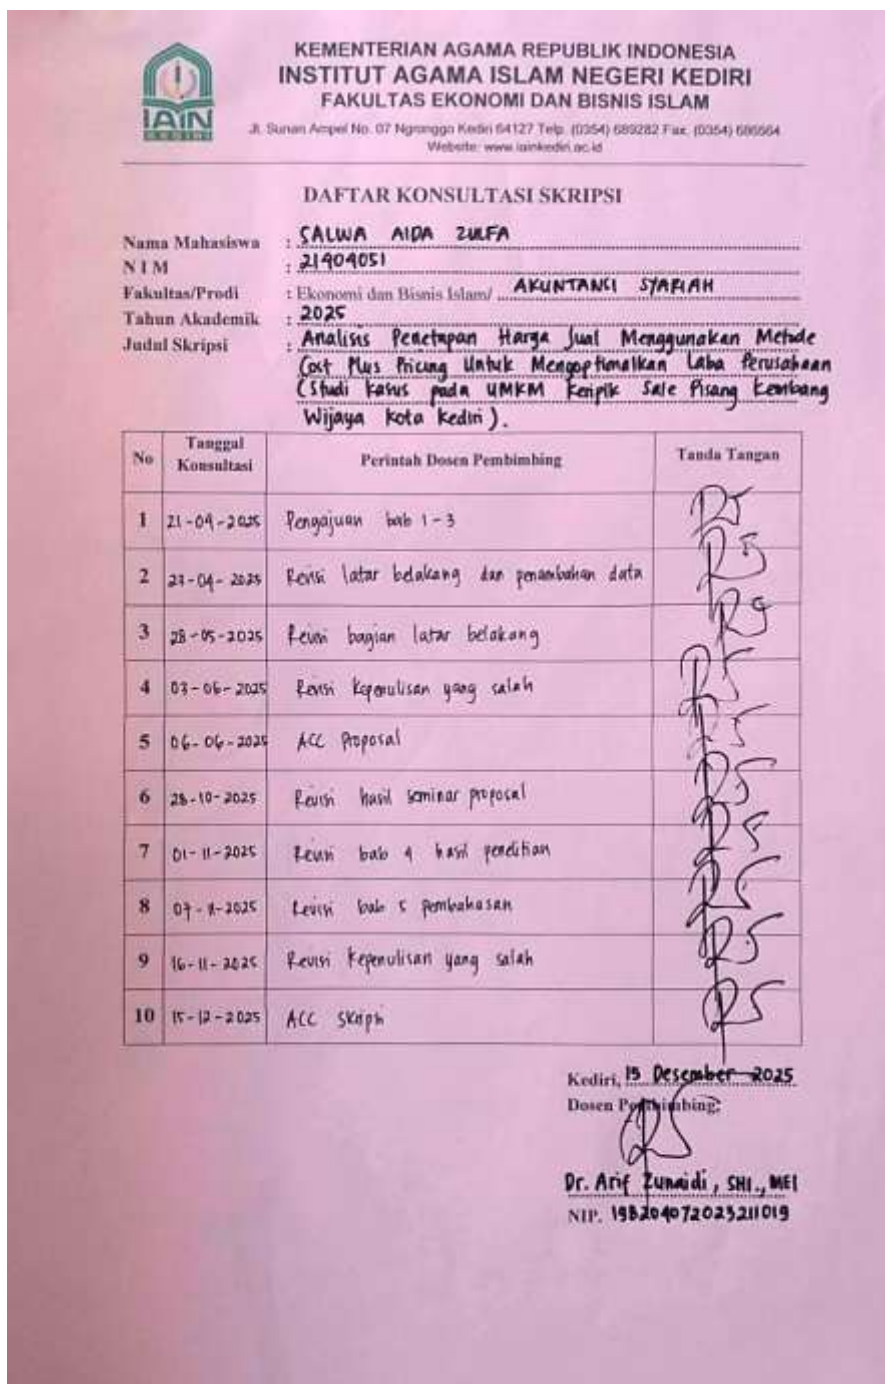 KEMENTERIAN AGAMA REPUBLIK INDONESIA
INSTITUT AGAMA ISLAM NEGERI KEDIRI
FAKULTAS EKONOMI DAN BISNIS ISLAM
Jl. Sunan Ampel No. 07 Ngronggo Kediri 64127 Telp. (0354) 689282 Fax. (0354) 686564
Website: www.iainkediri.ac.id
IAIN
KEDIRI
DAFTAR KONSULTASI SKRIPSI
Nama Mahasiswa : SALWA AIDA ZULFA
NIM : 21404051
Fakultas/Prodi : Ekonomi dan Bisnis Islam/ AKUNTANSI SYARIAH
Tahun Akademik : 2025
Judul Skripsi : Analisis Penetapan Harga Jual Menggunakan Metode
Cost Plus Pricing Untuk Mengoptimalkan Laba Perusahaan
(Studi Kasus pada UMKM Keripik Sale Pisang Kembang
Wijaya Kota Kediri).
No Tanggal Konsultasi Perintah Dosen Pembimbing Tanda Tangan
1 21-04-2025 Pengajuan bab 1-3
2 23-04-2025 Revisi latar belakang dan penambahan data
3 28-05-2025 Revisi bagian latar belakang
4 03-06-2025 Revisi Kepenulisan yang salah
5 06-06-2025 ACC Proposal
6 28-10-2025 Revisi hasil seminar proposal
7 01-11-2025 Revisi bab 4 hasil penelitian
8 Revisi bab 5 pembahasan
9 16-11-2025 Revisi Kepenulisan yang salah
10 15-12-2025 ACC Skripsi
Kediri, 15 Desember 2025
Dosen Pembimbing,
Dr. Arif Zunaidi, SHI., MEI
NIP. 198204072023211019